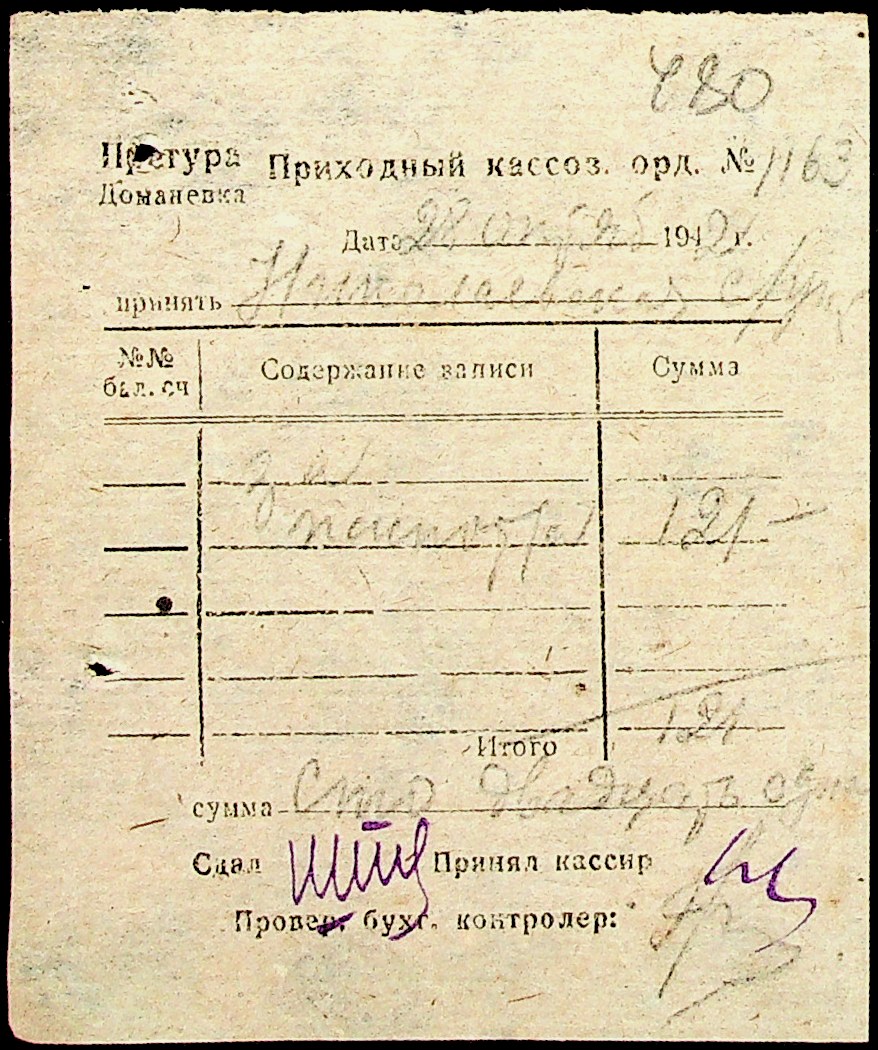 Претура
Доманевка
Приходный кассоз. орд. № 1163
Дата 28 1942 г.
принять
№№ бал. сч Содержание записи Сумма
за
121 —
Итого 121
сумма Сто двадцать один
Сдал Принял кассир
Провер. бухг. контролер: